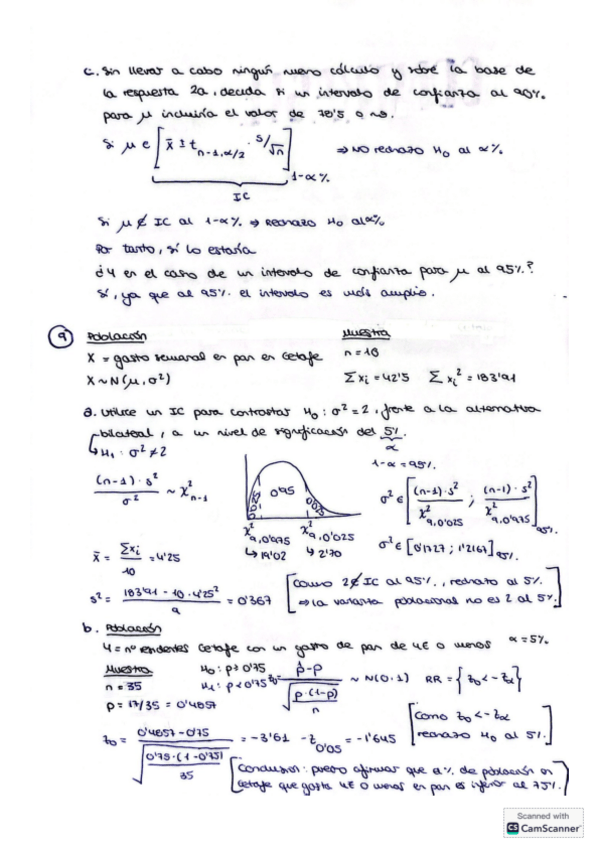 c. Sin llevar a cabo ningún nuevo cálculo y sobre la base de
la respuesta 2a, decida si un intervalo de confianza al 90%
para μ incluiría el valor de 78'5 o no.
Si μ ∈ [x̄ ± t n-1, α/2 · s/√n] 1-α% ⇒ NO rechazo H₀ al α%
IC
Si μ ∉ IC al 1-α% ⇒ rechazo H₀ al α%
Por tanto, sí lo estaría
¿Y en el caso de un intervalo de confianza para μ al 95%?
Sí, ya que al 95% el intervalo es más amplio.
9 Población Muestra
X = gasto semanal en pan en Getafe n = 10
X ~ N(μ, σ²) Σxi = 42'5 Σxi² = 183'91
a. Utilice un IC para contrastar H₀: σ² = 2, frente a la alternativa
bilateral, a un nivel de significación del 5%.
↳ H₁: σ² ≠ 2 α
1-α = 95%
(n-1)·s² / σ² ~ χ² n-1 0'025 0'95 0'025 σ² ∈ [(n-1)·s² / χ² 9, 0'025 ; (n-1)·s² / χ² 9, 0'975] 95%
χ² 9, 0'975 χ² 9, 0'025
↳ 19'02 ↳ 2'70
σ² ∈ [0'1727 ; 1'2167] 95%
x̄ = Σxi / 10 = 4'25
s² = 183'91 - 10·4'25² / 9 = 0'367 [Como 2 ∉ IC al 95%, rechazo al 5%.
⇒ la varianza poblacional no es 2 al 5%.]
b. Población
Y = nº Getafe con un gasto de pan de 4E o menos α = 5%
Muestra H₀: p ≥ 0'75
n = 35 H₁: p < 0'75
p̂ = 17/35 = 0'4857
z₀ = p̂ - p / √(p·(1-p) / n) ~ N(0,1) RR = {z₀ < -zα}
z₀ = 0'4857 - 0'75 / √(0'75·(1-0'75) / 35) = -3'61 -z 0'05 = -1'645 [Como z₀ < -zα
rechazo H₀ al 5%.]
[Conclusión: puedo afirmar que el % de población en
Getafe que gasta 4E o menos en pan es inferior al 75%.]
Scanned with
CS CamScanner